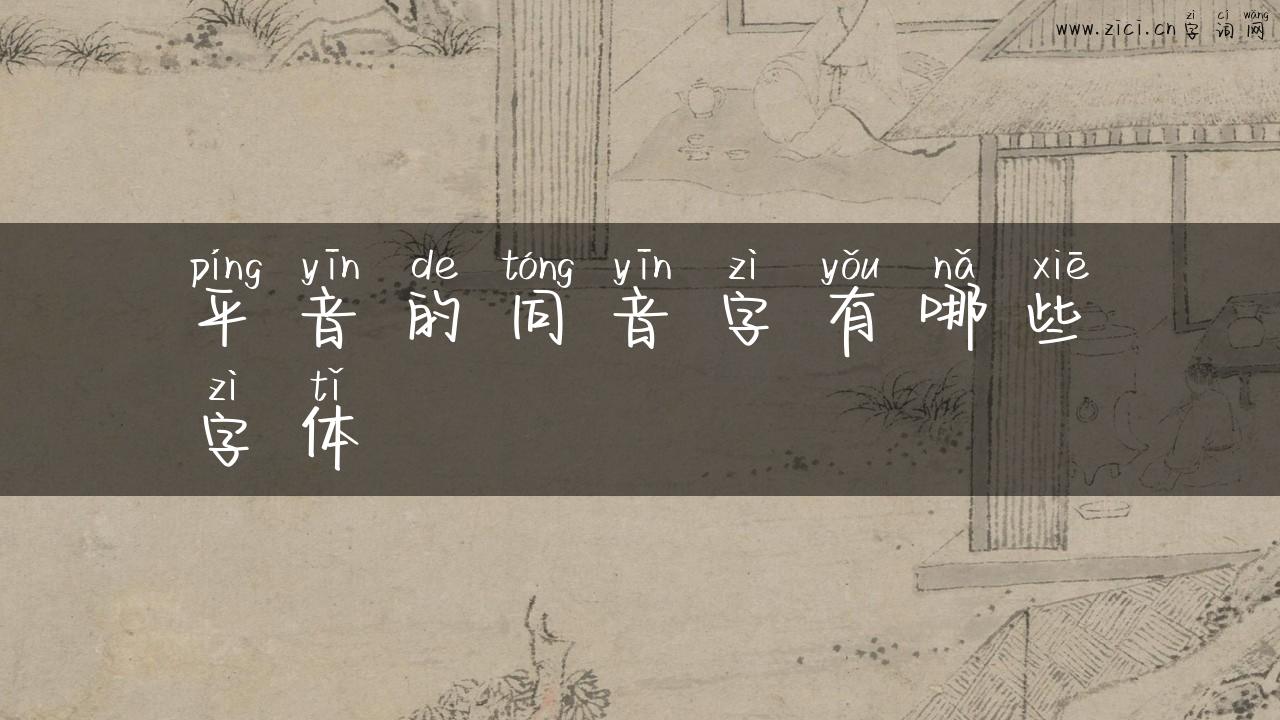 zì cí wǎng
www.zici.cn 字词网
píng yīn de tóng yīn zì yǒu nǎ xiē
平音的同音字有哪些
zì tǐ
字体